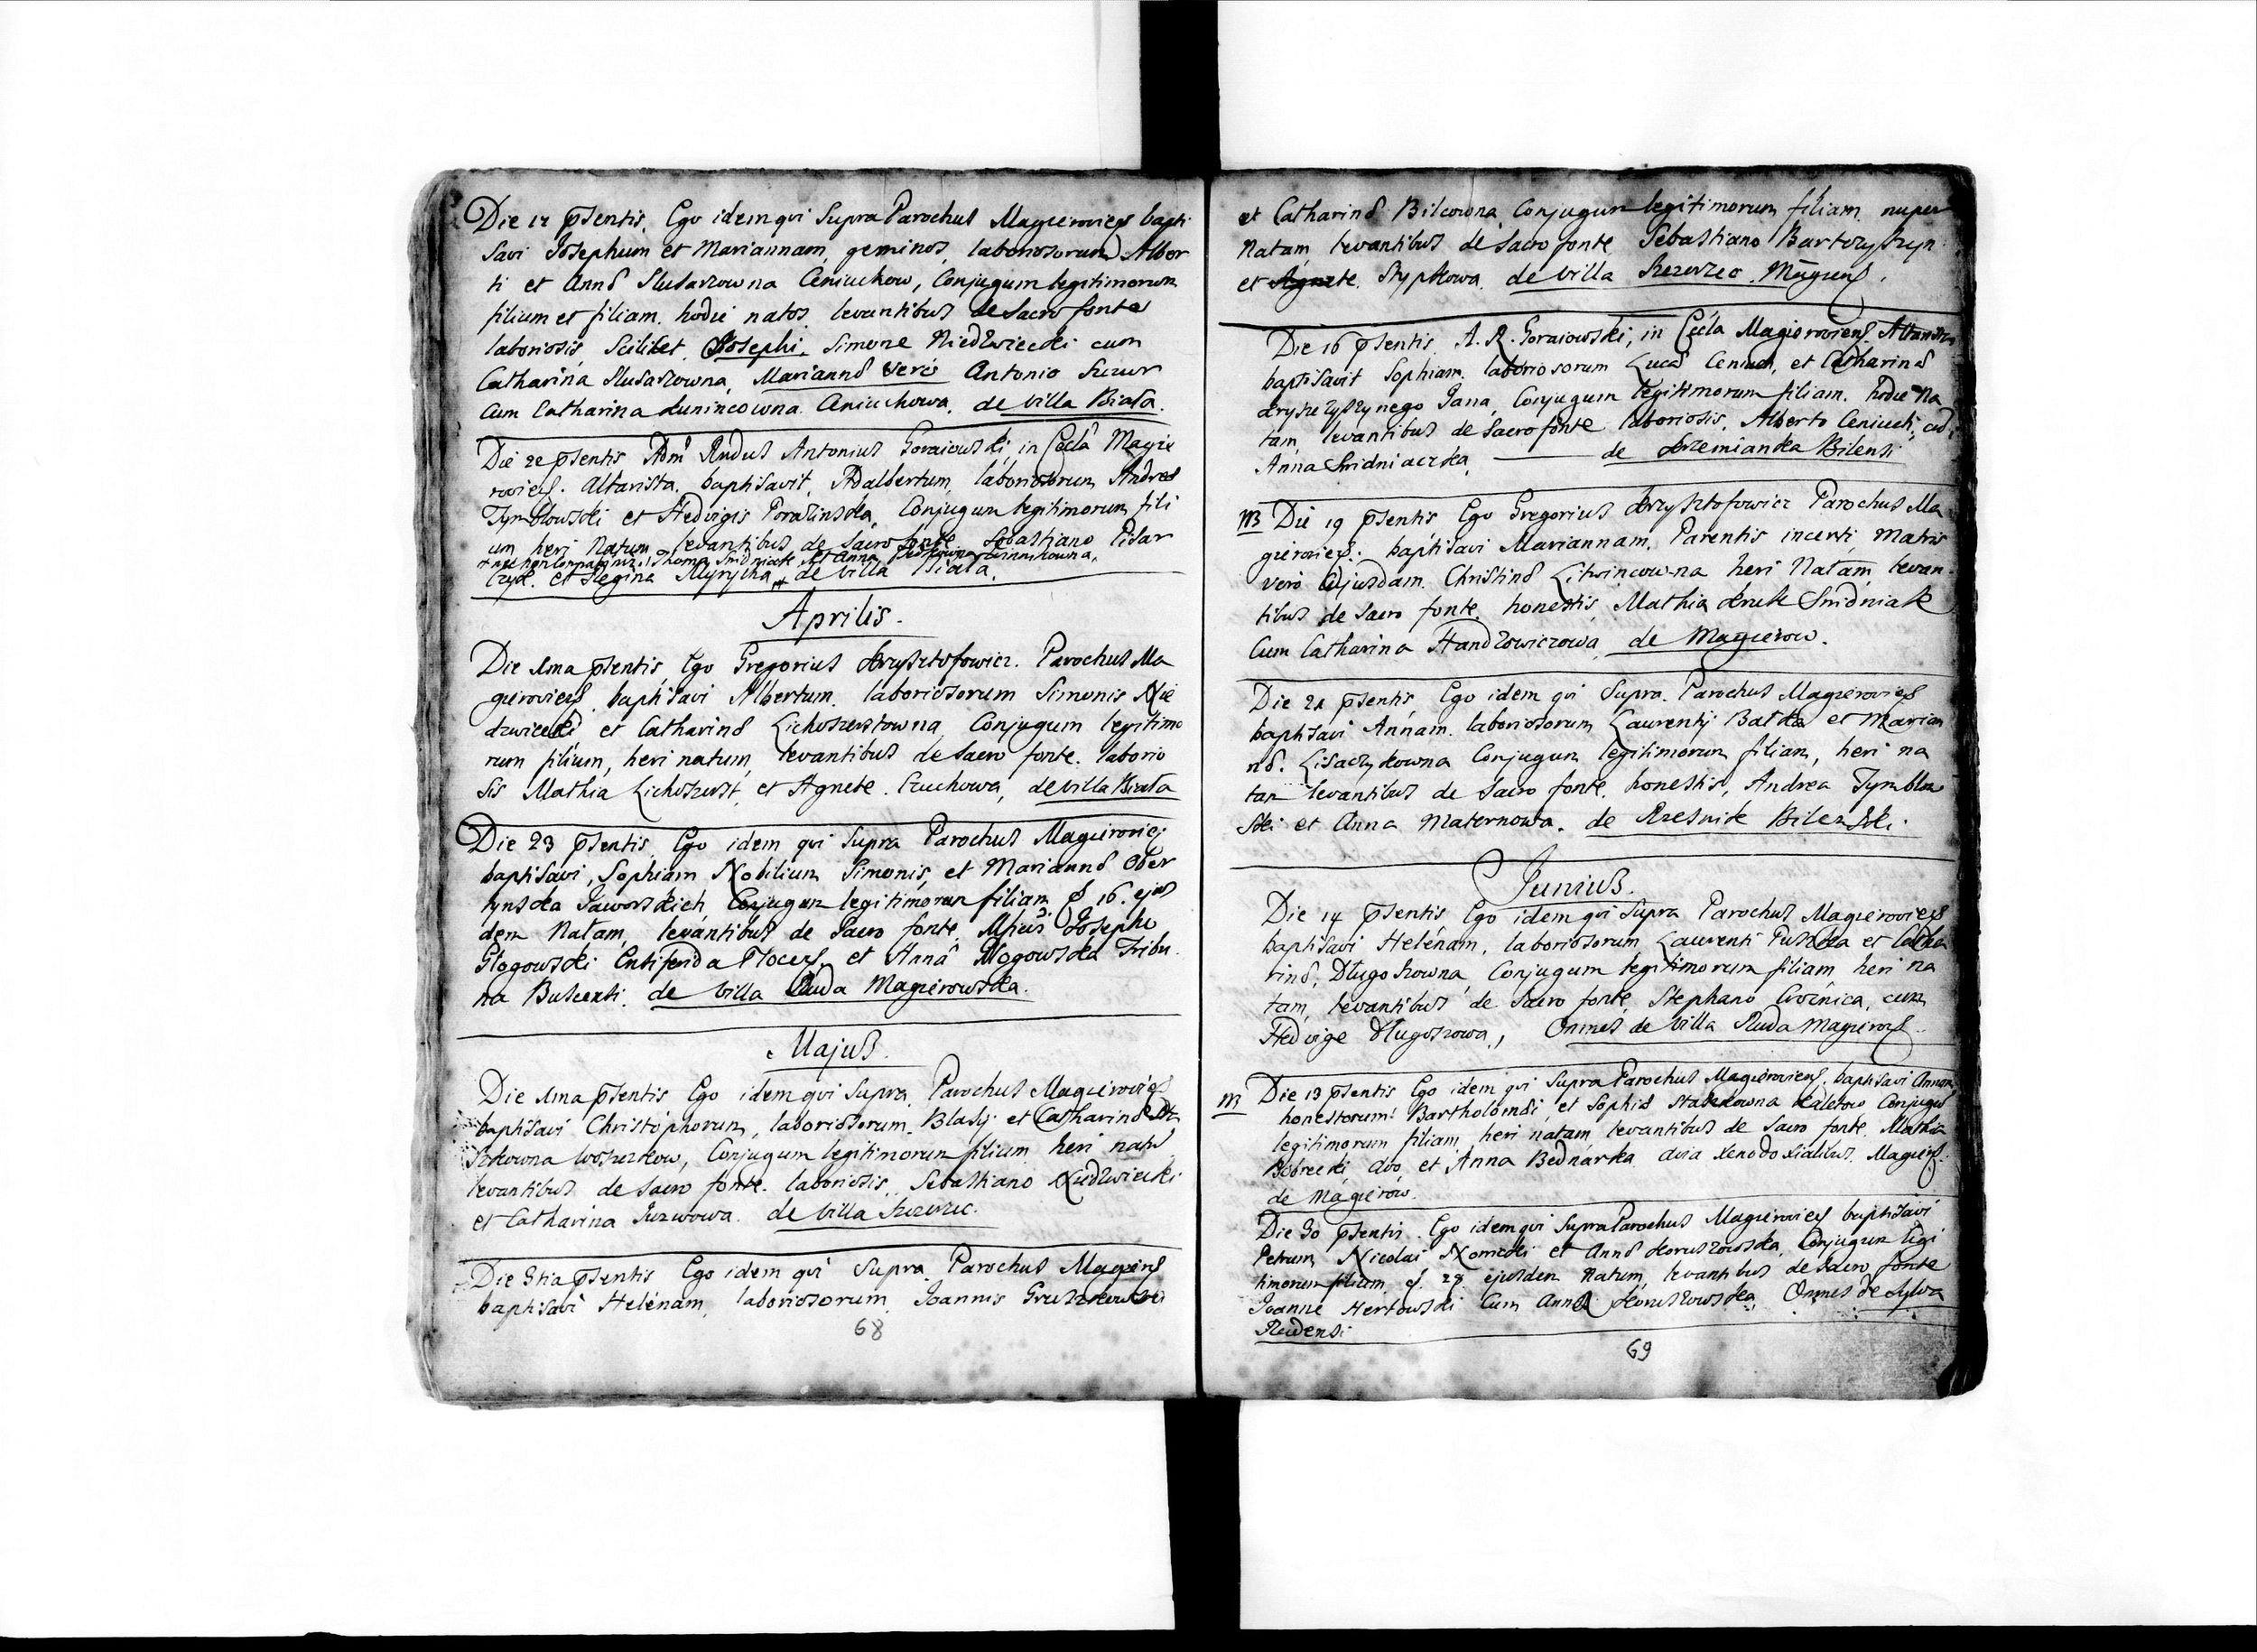 Die 12 psentis, Ego idem qui Supra Parochus Magierovieş bapti
savi Josephum et Mariannam, geminos, laboriosorum Alber
ti et Annæ Slusarzowna Ceniuchow, Conjugum legitimorum
filium et filiam hodie natos levantibus de Sacro fonte
laboriosis, Scilicet Josephi, Simone Niedzwiecki cum
Catharina Slusarzowna, Mariannæ vero Antonio Szczur
Cum Catharina Aniuchowa, de villa Biała.
Die 22 psentis Adm Rndus Antonius Goraiowski, in Eccla Magie
rovieş. Altarista, baptisavit, Adalbertum, laboriosorum Andreæ
Tymblowski et Hedvigis Porazinska, Conjugum legitimorum fili
um heri Natum, levantibus de Sacro fonte Sebastiano Pisar
et Anna
czyk. et Regina Myrycha de villa Biała.
Aprilis.
Die 1ma psentis, Ego Gregorius Krzysztofowicz. Parochus Ma
gierovieş. baptisavi Albertum laboriosorum Simonis Nie
dzwiecki et Catharinæ Lichoszerstowna, Conjugum legitimo
rum filium, heri natum, levantibus de Sacro fonte. laborio
sis Mathia Lichoszerst, et Agnete Czuchowa, de villa Biała
Die 23 psentis, Ego idem qui Supra Parochus Magierovieş
baptisavi, Sophiam Nobilium Simonis, et Mariannæ Ober
tynska Jaworskich, Conjugum legitimorum filiam d 16. ejus
dem Natam, levantibus de Sacro fonte, Josepho
Głogowski Ensiferida Płoceş, et Anna Głogowska Tribu
na Buscensi. de villa Ruda Magierowska.
Majus.
Die 1ma psentis Ego idem qui Supra, Parochus Magierovieş
baptisavi Christophorum, laboriosorum Blasÿ et Catharinæ
Woszczkow, Conjugum legitimorum filium heri natu
levantibus de Sacro fonte. laboriosis, Sebastiano Niedzwiecki
et Catharina Szczurowa. de villa Szczerzec.
Die 3tia psentis Ego idem qui Supra Parochus Magierş
baptisavi Helénam, laboriosorum, Joannis Gruszkowski
68
et Catharinæ Bilcowna, Conjugum legitimorum filiam nuper
Natam, levantibus de Sacro fonte Sebastiano Bartozyszyn
et Agnete Stypkowa de villa Szczerzec Magierş.
Die 16 psentis, A. R. Goraiowski, in Eccla Magierovieş. Altarista
baptisavit Sophiam laboriosorum Lucæ Ceniuch, et Catharinæ
Krzyszczyszynego Jana, Conjugum legitimorum filiam. hodie Na
tam, levantibus de Sacro fonte laboriosis, Alberto Ceniuch, cum
Anna Sridniaczka, de Krzemianka Bilensi
M Die 19 psentis Ego Gregorius Krzysztofowicz Parochus Ma
gierovieş. baptisavi Mariannam, Parentis incerti, Matris
vero Cujusdam Christinæ Litwincowna heri Natam levan
tibus de Sacro fonte honestis, Mathia Kruk Sridniak
Cum Catharina Handzowiczowa, de Magierow.
Die 21 psentis, Ego idem qui Supra Parochus Magierovieş
baptisavi Annam laboriosorum Laurentÿ Batka et Marian
næ. Lisaczykowna Conjugum legitimorum filiam, heri na
tam levantibus de Sacro fonte, honestis, Andrea Tymblow
ski et Anna Maternowa. de Rzesnik Bilenski.
Junius.
Die 14 psentis Ego idem qui Supra Parochus Magierovieş
baptisavi Helénam, laboriosorum Laurenti Puszka et Catha
rinæ, Długoszowna, Conjugum legitimorum filiam heri na
tam, levantibus de Sacro fonte, Stephano Croźnica, cum
Hedvige Długoszowa, Omnes de villa Ruda Magierovş
M Die 13 psentis Ego idem qui Supra Parochus Magierovienş. baptisavi Annam
honestorum Bartholomæi, et Sophiæ Conjugum
legitimorum filiam, heri natam, levantibus de Sacro fonte, Mathia
Bobrecki, dvo et Anna Bednarka dvia Xenodoxialibus Magierş.
de Magierow.
Die 30 psentis. Ego idem qui Supra Parochus Magierovieş baptisavi
Petrum Nicolai Nomeski et Annæ Koruszowska, Conjugum legi
timorum filium, d. 28 ejusdem Natum, levantibus de Sacro fonte
Joanne Hertowski Cum Anna Koruszowska, Omnes de Sylva
Rudensi
69